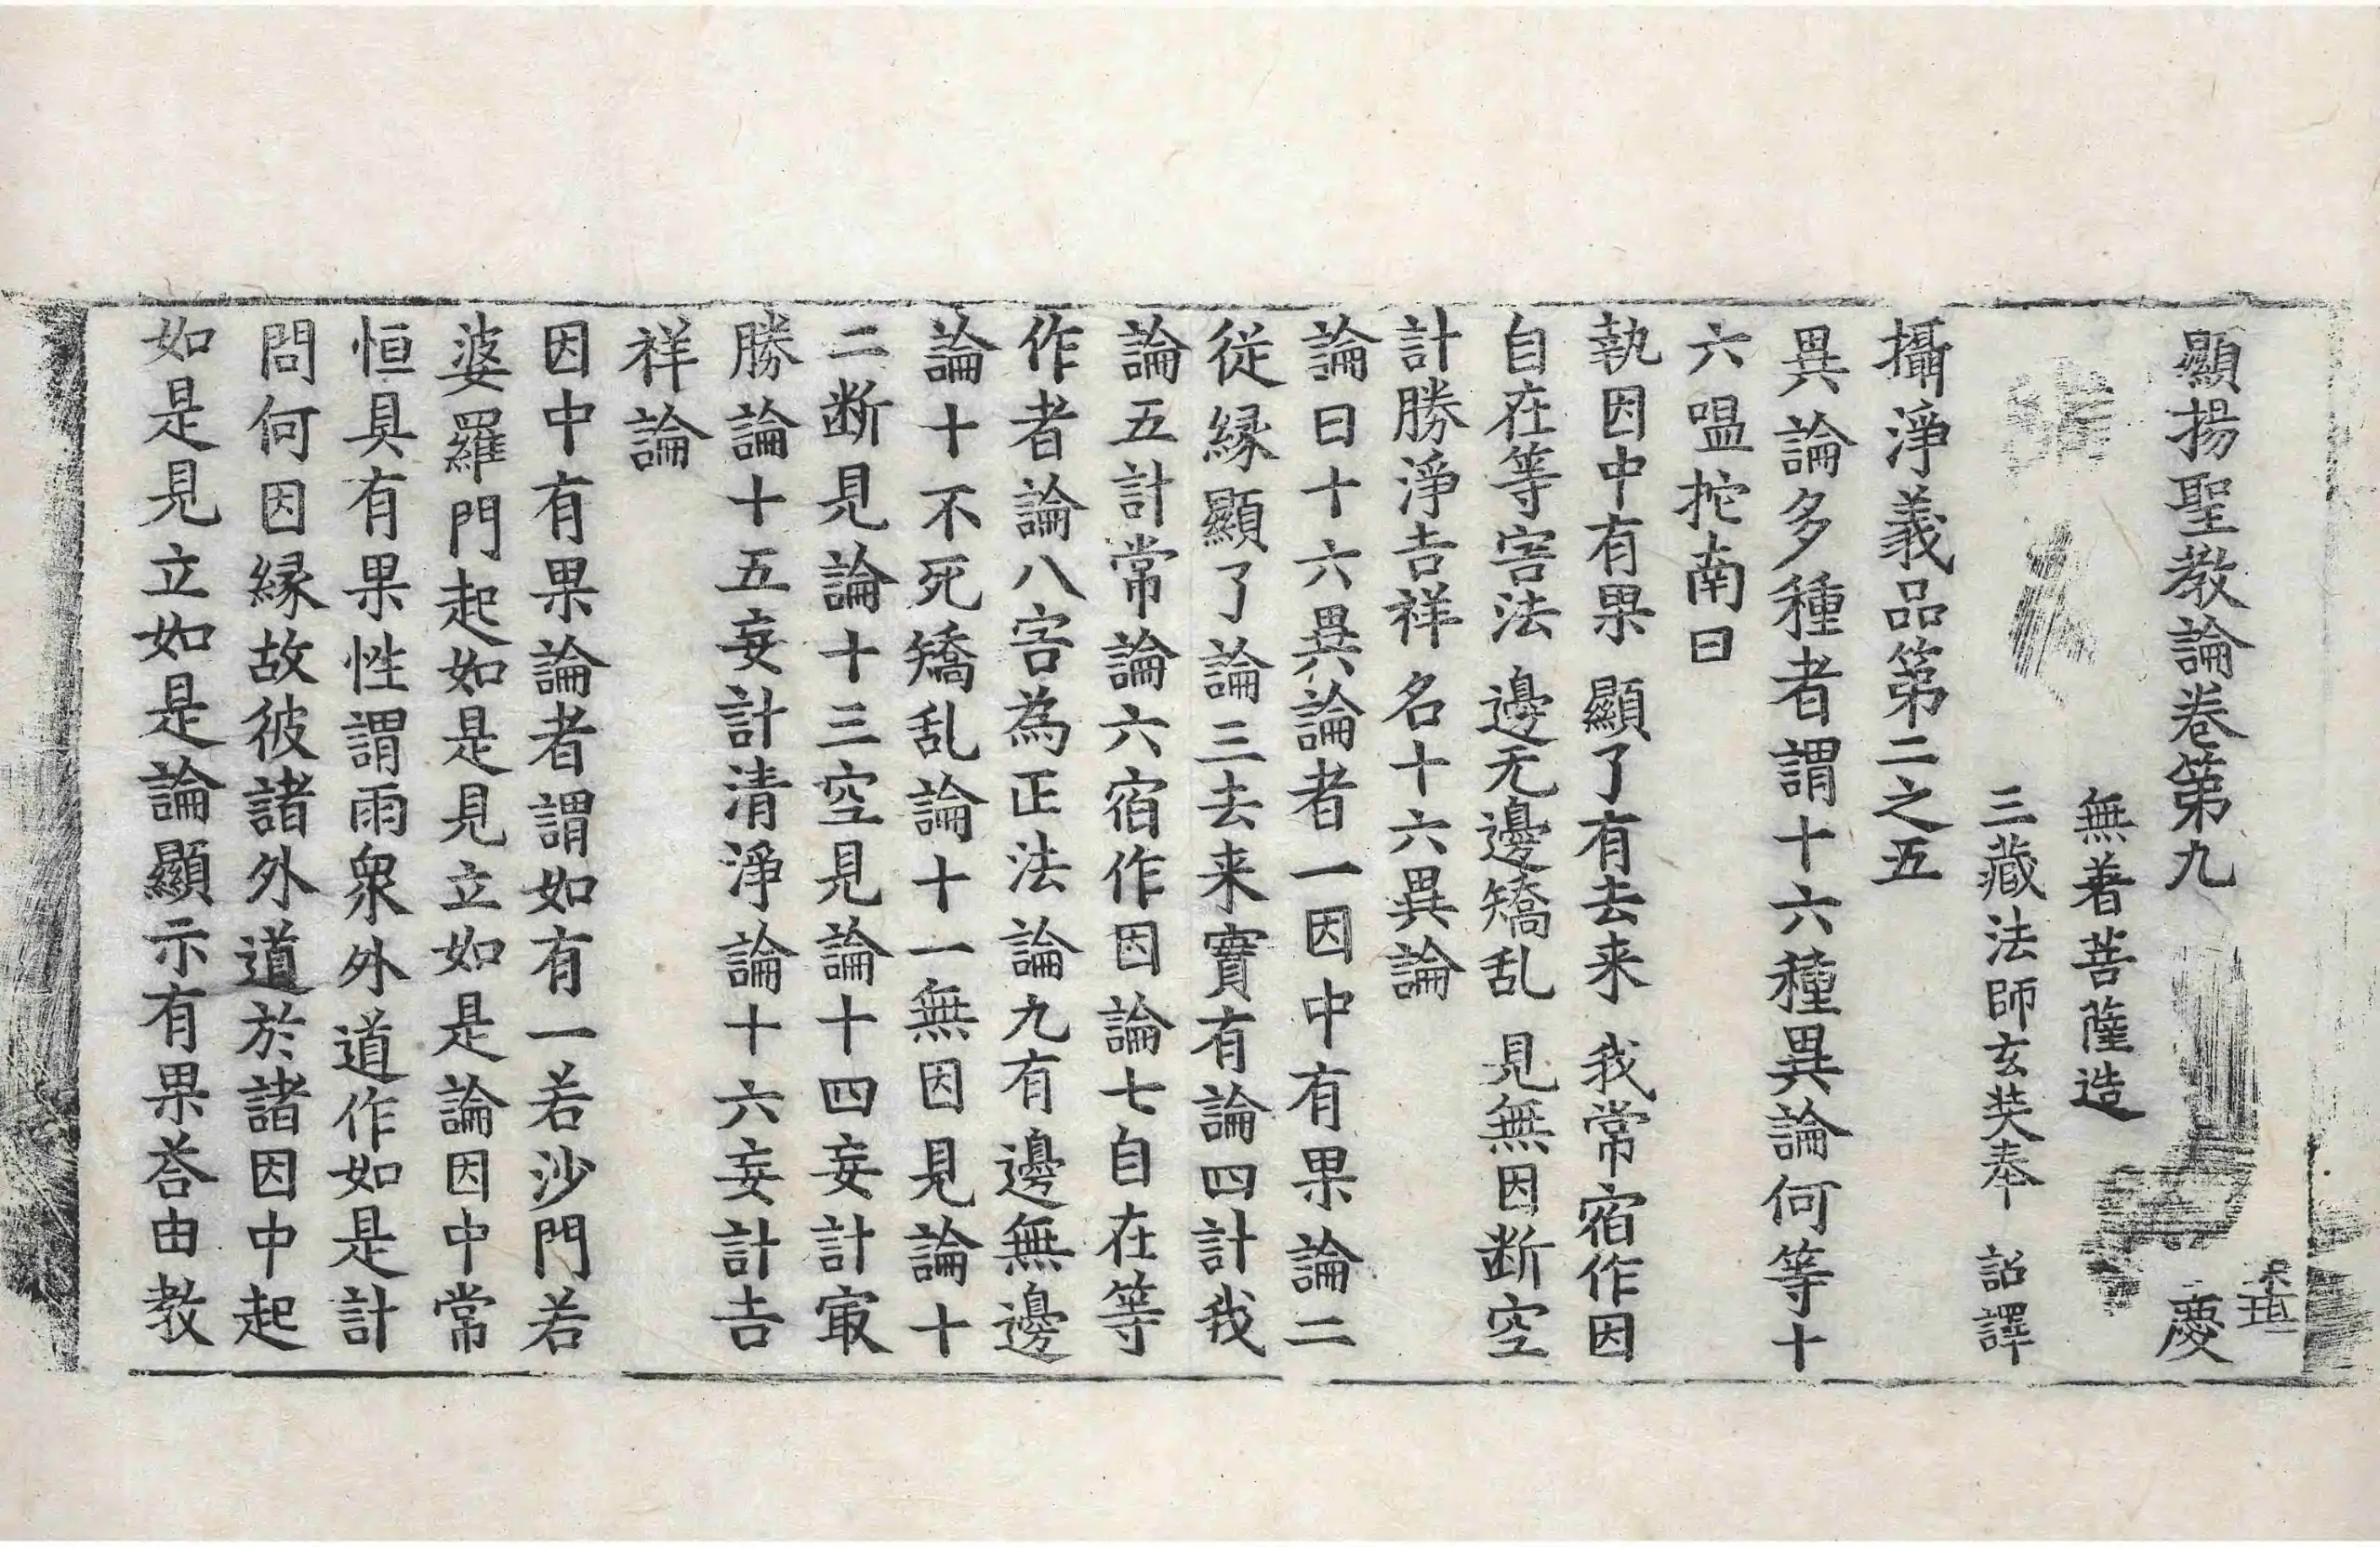 顯揚聖教論卷第九 慶
無著菩薩造
三藏法師玄奘奉 詔譯
攝淨義品第二之五
異論多種者謂十六種異論何等十
六嗢拕南曰
執因中有果 顯了有去来 我常宿作因
自在等害法 邊无邊矯乱 見無因断空
計勝淨吉祥 名十六異論
論曰十六異論者一因中有果論二
從縁顯了論三去来實有論四計我
論五計常論六宿作因論七自在等
作者論八害為正法論九有邊無邊
論十不死矯乱論十一無因見論十
二断見論十三空見論十四妄計㝡
勝論十五妄計清淨論十六妄計吉
祥論
因中有果論者謂如有一若沙門若
婆羅門起如是見立如是論因中常
恒具有果性謂雨衆外道作如是計
問何因縁故彼諸外道於諸因中起
如是見立如是論顯示有果荅由教